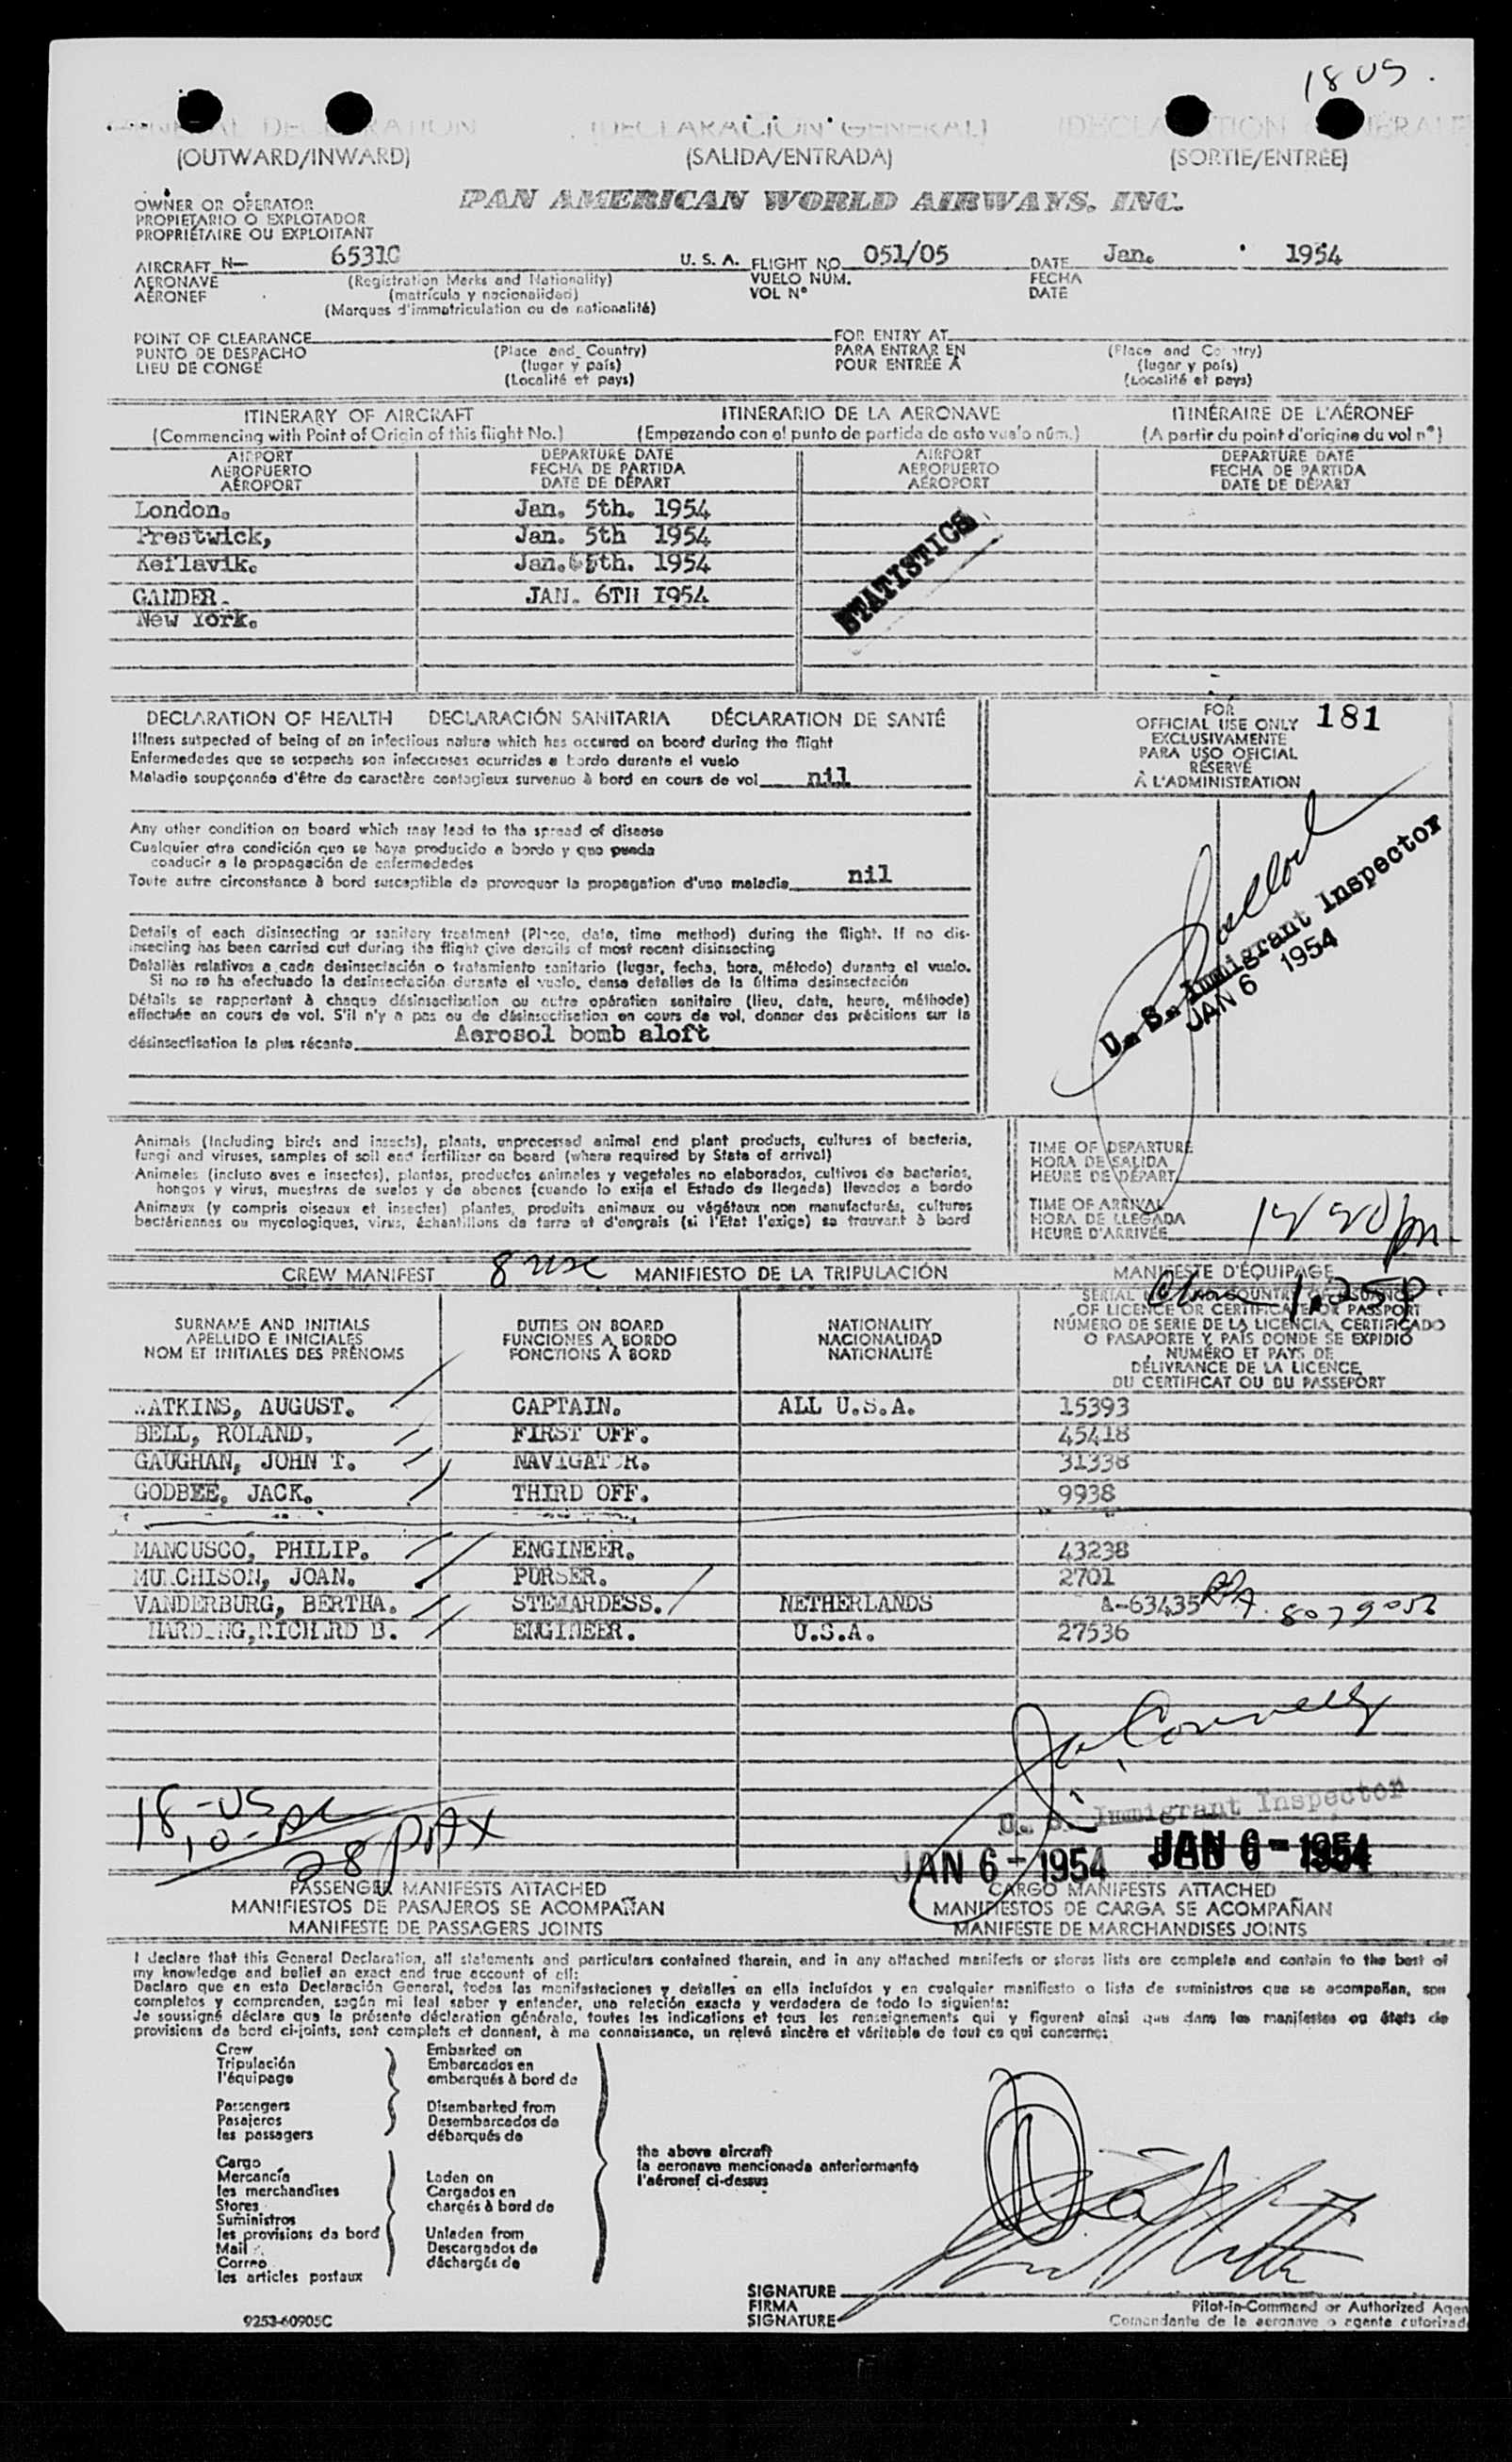 18 US.
GENERAL DECLARATION (DECLARACION GENERAL) (DECLARATION GENERALE
(OUTWARD/INWARD) (SALIDA/ENTRADA) (SORTIE/ENTRÉE)
OWNER OR OPERATOR
PROPIETARIO O EXPLOTADOR
PROPRIÉTAIRE OU EXPLOITANT
PAN AMERICAN WORLD AIRWAYS, INC.
AIRCRAFT N— 6531C U. S. A. FLIGHT NO. 051/05 DATE Jan. 1954
AERONAVE (Registration Marks and Nationality) VUELO NÚM. FECHA
AÉRONEF (matrícula y nacionalidad) VOL N° DATE
(Marques d'immatriculation ou de nationalité)
POINT OF CLEARANCE FOR ENTRY AT
PUNTO DE DESPACHO (Place and Country) PARA ENTRAR EN (Place and Country)
LIEU DE CONGÉ (lugar y país) POUR ENTRÉE À (lugar y país)
(Localité et pays) (Localité et pays)
ITINERARY OF AIRCRAFT ITINERARIO DE LA AERONAVE ITINÉRAIRE DE L'AÉRONEF
(Commencing with Point of Origin of this flight No.) (Empezando con el punto de partida de este vuelo núm.) (A partir du point d'origine du vol n°)
AIRPORT DEPARTURE DATE AIRPORT DEPARTURE DATE
AEROPUERTO FECHA DE PARTIDA AEROPUERTO FECHA DE PARTIDA
AÉROPORT DATE DE DÉPART AÉROPORT DATE DE DÉPART
London. Jan. 5th. 1954
Prestwick, Jan. 5th 1954
Keflavik. Jan. 5th. 1954
GANDER. JAN. 6TH 1954
New York.
STATISTICS
DECLARATION OF HEALTH DECLARACIÓN SANITARIA DÉCLARATION DE SANTÉ
Illness suspected of being of an infectious nature which has occured on board during the flight
Enfermedades que se sospecha son infecciosas ocurridas a bordo durante el vuelo
Maladie soupçonnée d'être de caractère contagieux survenue à bord en cours de vol nil
Any other condition on board which may lead to the spread of disease
Cualquier otra condición que se haya producido a bordo y que pueda
conducir a la propagación de enfermedades
Toute autre circonstance à bord susceptible de provoquer la propagation d'une maladie nil
Details of each disinsecting or sanitary treatment (Place, date, time method) during the flight. If no dis-
insecting has been carried out during the flight give details of most recent disinsecting
Detalles relativos a cada desinsectación o tratamiento sanitario (lugar, fecha, hora, método) durante el vuelo.
Si no se ha efectuado la desinsectación durante el vuelo, dense detalles de la última desinsectación
Détails se rapportant à chaque désinsectisation ou autre opération sanitaire (lieu, date, heure, méthode)
effectuée en cours de vol. S'il n'y a pas eu de désinsectisation en cours de vol, donner des précisions sur la
désinsectisation la plus récente Aerosol bomb aloft
FOR
OFFICIAL USE ONLY 181
EXCLUSIVAMENTE
PARA USO OFICIAL
RÉSERVÉ
À L'ADMINISTRATION
U. S. Immigrant Inspector
JAN 6 1954
Animals (Including birds and insects), plants, unprocessed animal and plant products, cultures of bacteria,
fungi and viruses, samples of soil and fertilizer on board (where required by State of arrival)
Animales (incluso aves e insectos), plantas, productos animales y vegetales no elaborados, cultivos de bacterias,
hongos y virus, muestras de suelos y de abonos (cuando lo exija el Estado de llegada) llevados a bordo
Animaux (y compris oiseaux et insectes) plantes, produits animaux ou végétaux non manufacturés, cultures
bactériennes ou mycologiques, virus, échantillons de terre et d'engrais (si l'Etat l'exige) se trouvant à bord
TIME OF DEPARTURE
HORA DE SALIDA
HEURE DE DÉPART
TIME OF ARRIVAL
HORA DE LLEGADA
HEURE D'ARRIVÉE
CREW MANIFEST MANIFIESTO DE LA TRIPULACIÓN MANIFESTE D'ÉQUIPAGE
SURNAME AND INITIALS DUTIES ON BOARD NATIONALITY
APELLIDO E INICIALES FUNCIONES A BORDO NACIONALIDAD
NOM ET INITIALES DES PRÉNOMS FONCTIONS À BORD NATIONALITÉ
OF LICENCE OR CERTIFICATE OR PASSPORT
NÚMERO DE SERIE DE LA LICENCIA, CERTIFICADO
O PASAPORTE Y PAÍS DONDE SE EXPIDIÓ
NUMÉRO ET PAYS DE
DÉLIVRANCE DE LA LICENCE,
DU CERTIFICAT OU DU PASSEPORT
WATKINS, AUGUST. CAPTAIN. ALL U.S.A. 15393
BELL, ROLAND. FIRST OFF. 45418
GAUGHAN, JOHN T. NAVIGATOR. 31338
GODBEE, JACK. THIRD OFF. 9938
MANCUSCO, PHILIP. ENGINEER. 43238
MURCHISON, JOAN. PURSER. 2701
VANDERBURG, BERTHA. STEWARDESS. NETHERLANDS A-63435
HARDING, RICHARD B. ENGINEER. U.S.A. 27536
18-US
10-AL
28 PAX
U. S. Immigrant Inspector
JAN 6 - 1954 JAN 6 - 1954
PASSENGER MANIFESTS ATTACHED CARGO MANIFESTS ATTACHED
MANIFIESTOS DE PASAJEROS SE ACOMPAÑAN MANIFIESTOS DE CARGA SE ACOMPAÑAN
MANIFESTE DE PASSAGERS JOINTS MANIFESTE DE MARCHANDISES JOINTS
I declare that this General Declaration, all statements and particulars contained therein, and in any attached manifests or stores lists are complete and contain to the best of
my knowledge and belief an exact and true account of all:
Declaro que en esta Declaración General, todas las manifestaciones y detalles en ella incluídos y en cualquier manifiesto o lista de suministros que se acompañan, son
completos y comprenden, según mi leal saber y entender, una relación exacta y verdadera de todo lo siguiente:
Je soussigné déclare que la présente déclaration générale, toutes les indications et tous les renseignements qui y figurent ainsi que dans les manifestes ou états de
provisions de bord ci-joints, sont complets et donnent, à ma connaissance, un relevé sincère et véritable de tout ce qui concerne:
Crew Embarked on
Tripulación Embarcados en
l'équipage embarqués à bord de
Passengers Disembarked from
Pasajeros Desembarcados de
les passagers débarqués de
the above aircraft
la aeronave mencionada anteriormente
l'aéronef ci-dessus
Cargo
Mercancía Laden on
les merchandises Cargados en
Stores chargés à bord de
Suministros
les provisions de bord Unladen from
Mail Descargados de
Correo déchargés de
les articles postaux
SIGNATURE
FIRMA Pilot-in-Command or Authorized Agen
SIGNATURE Comandante de la aeronave o agente autorizad
9253-60905C